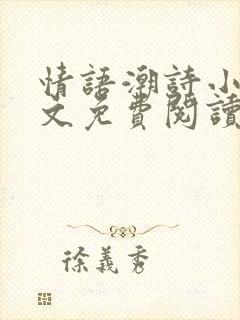 情語潮詩小
文免費閱讀
徐義秀